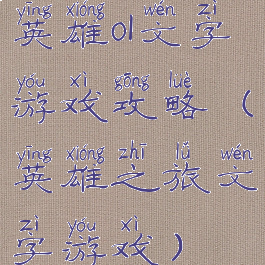 yīng xióng wén zì
英雄01文字
yóu xì gōng luè
游戏攻略（
yīng xióng zhī lǚ wén
英雄之旅文
zì yóu xì
字游戏）